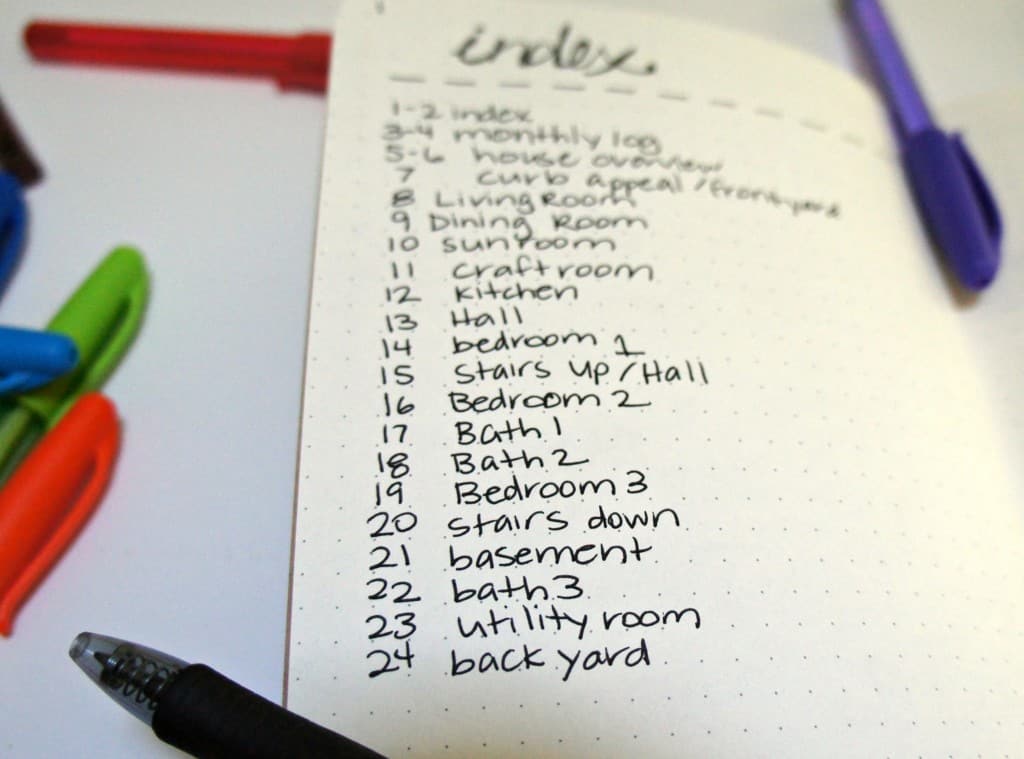 1
index
1-2 index
3-4 monthly log
5-6 house overview
7 curb appeal / front yard
8 Living Room
9 Dining Room
10 sunroom
11 craft room
12 kitchen
13 Hall
14 bedroom 1
15 Stairs up / Hall
16 Bedroom 2
17 Bath 1
18 Bath 2
19 Bedroom 3
20 stairs down
21 basement
22 bath 3
23 utility room
24 back yard